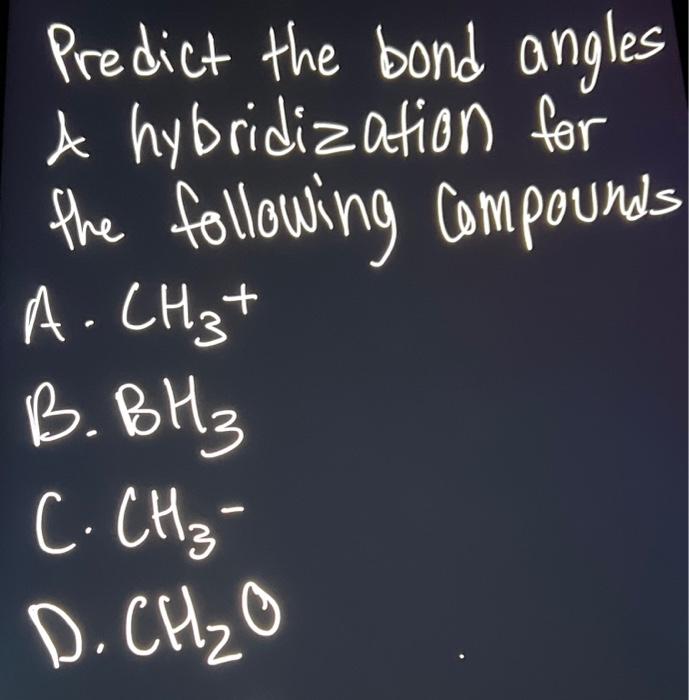 Predict the bond angles
& hybridization for
the following Compounds
A. CH₃+
B. BH₃
C. CH₃-
D. CH₂O